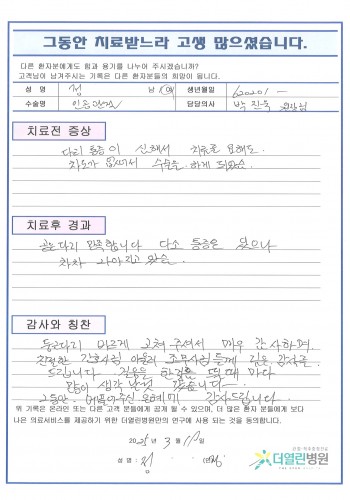 그동안 치료받느라 고생 많으셨습니다.
다른 환자분에게도 힘과 용기를 나누어 주시겠습니까?
고객님이 남겨주시는 기록은 다른 환자분들의 희망이 됩니다.
성 명 정 남 / 여 생년월일 620201 -
수술명 인공관절 담당의사 박진욱 원장님
치료전 증상
다리 통증이 심해서 치료를 요해도
차도가 없어서 수술을 하게 되었슴
치료후 경과
굽은다리 만족합니다 다소 통증은 있으나
차차 나아지고 있슴
감사와 칭찬
동근다리 바르게 고쳐주셔서 매우 감사하며
친절한 간호사님 아울러 조무사님들께 깊은 감사를
드립니다 걸음을 한걸음 뛸때 마다
많이 생각날것 같습니다
그동안 베풀어주신 은혜에 감사드립니다
위 기록은 온라인 또는 다른 고객 분들에게 공개 될 수 있으며, 더 많은 환자 분들에게 보다
나은 의료서비스를 제공하기 위한 더열린병원만의 연구에 사용 되는 것을 동의합니다.
2025년 3월 11일
성 명 : 정
더열린병원